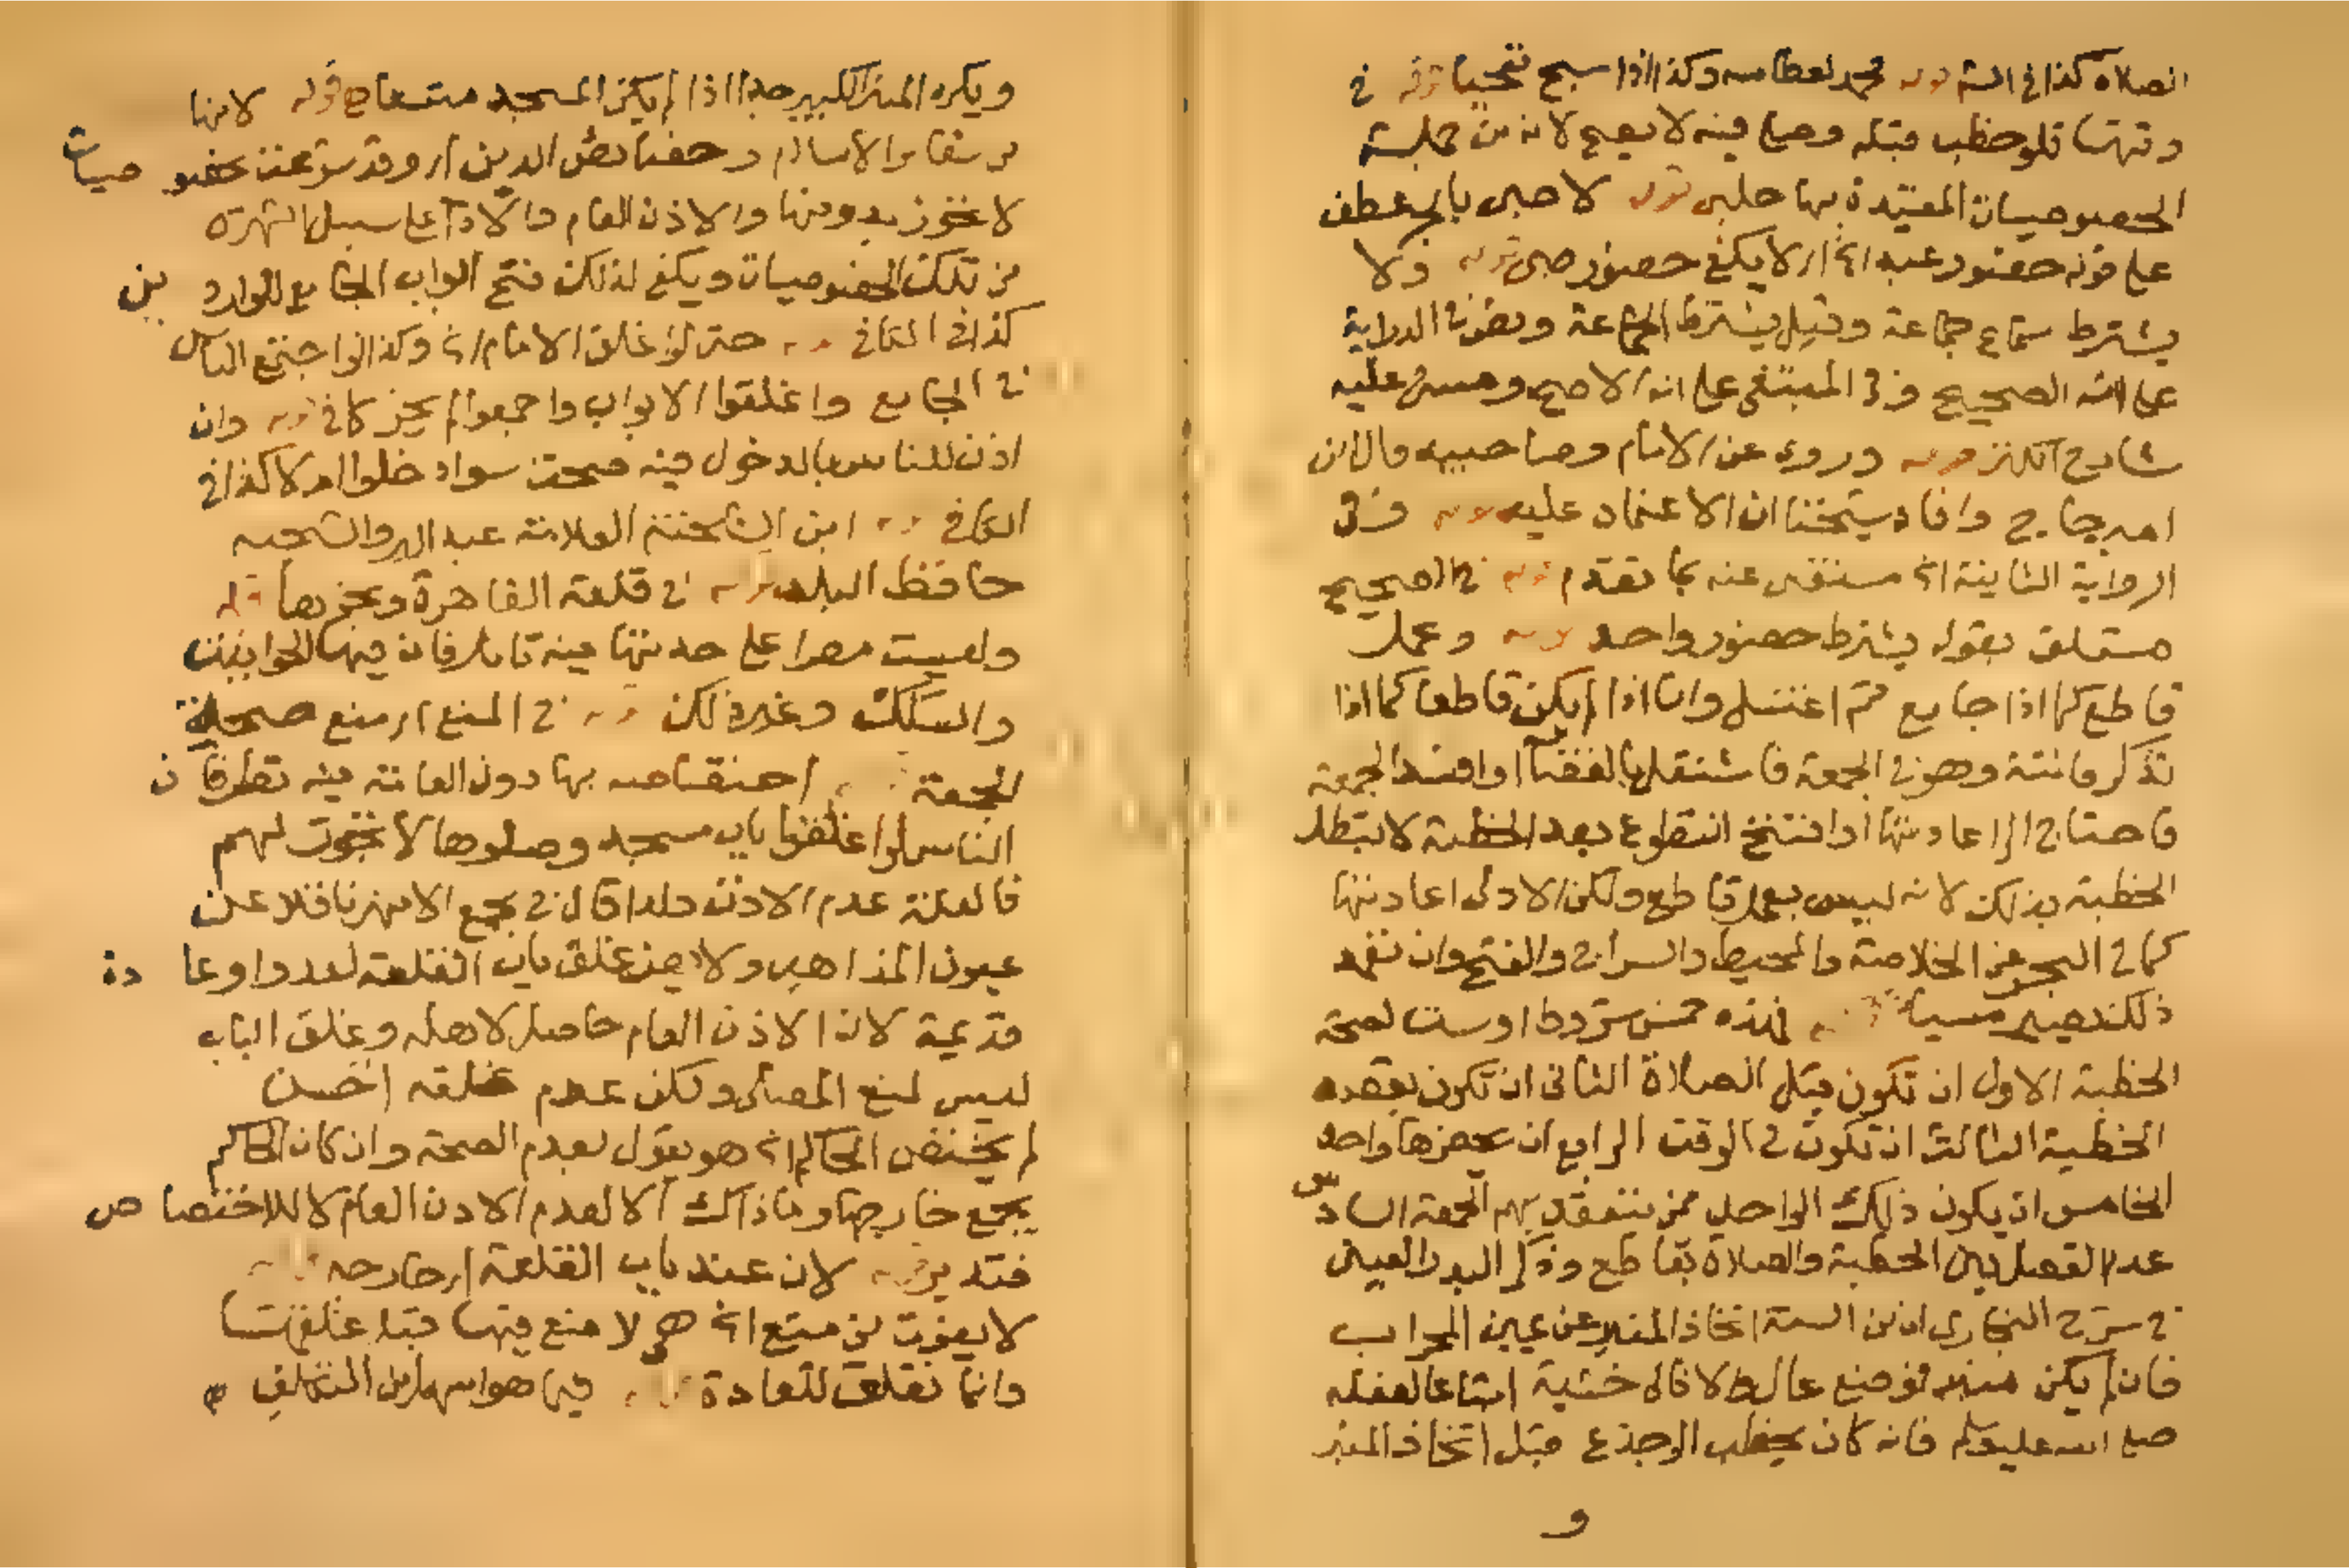 الصلاة كذا في الشر قوله فحمد لعطاسه وكذا اذا سبح تعجبا قوله في
وقتها فلو خطب قبله وصلى فيه لا يصح لانه من جملة
الخصوصيات المقيدة بها حلبى قوله لا صبى بالجر عطف
على قوله حضور عبد الخ اى لا يكفى حضور صبى قوله ولا
يشترط سماع جماعة وقيل يشترط الجماعة
على انه الصحيح وفى المبتغى على انه الاصح ومشى عليه
شارح الكنز قوله وروى عن الامام وصاحبيه قال ابن
امير حاج وافاد شيخنا ان الاعتماد عليه قوله وفى
الرواية الثانية الخ مستغنى عنه بما تقدم قوله فى الصحيح
متعلق بقوله يشترط حضور واحد قوله وعمل
قاطع كما اذا جامع ثم اغتسل واما اذا لم يكن قاطعا كما اذا
تذكر فائتة وهو فى الجمعة فاشتغل بالقضا او افسد الجمعة
فاحتاج الى اعادتها او افتتح التطوع بعد الخطبة لا تبطل
الخطبة بذلك لانه ليس بعمل قاطع ولكن الاولى اعادتها
كما فى البحر عن الخلاصة والمحيط والسراج والفتح وان تعمد
ذلك يصير مسيأ قوله فهذه خمس شروط او ست لصحة
الخطبة الاول ان تكون قبل الصلاة الثانى ان تكون بقصد
الخطبة الثالث ان تكون فى الوقت الرابع ان يحضرها واحد
الخامس ان يكون ذلك الواحد ممن تنعقد بهم الجمعة السادس
عدم الفصل بين الخطبة والصلاة بقاطع وذكر البدر العينى
فى شرح البخارى ان من السنة اتخاذ المنبر عن يمين المحراب
فان لم يكن منبر فوضع عال والا فالى خشبة اتباعا لفعله
صلى الله عليه وسلم فانه كان يخطب الى جذع قبل اتخاذ المنبر
و
ويكره المنبر الكبير جدا اذا لم يكن المسجد متسعا قوله لانها
من شعائر الاسلام وخصائص الدين اى وقد شرعت بخصوصيات
لا تجوز بدونها والاذن العام والاداء على سبيل الشهرة
من تلك الخصوصيات ويكفى لذلك فتح ابواب الجامع للواردين
كذا فى الكافى قوله حتى لو غلق الامام الخ وكذا لو اجتمع الناس
فى الجامع واغلقوا الابواب وجمعوا لم يجز كافى قوله وان
اذن للناس بالدخول فيه صحت سواء دخلوا ام لا كذا فى
الكافى قوله ابن الشحنة العلامة عبد البر والشحنه
حافظ البلد قوله فى قلعة القاهرة ونحوها قوله
وليست مصرا على حدتها فيه تامل فان فيها الحوانيت
والسكك وغير ذلك قوله فى المنع اى منع صحة
الجمعة اختصاصه بها دون العامة فيه نظر فان
الناس لو اغلقوا باب مسجد وصلوها لا تجوز لهم
فالعلة عدم الاذن ولذا قال فى مجمع الانهر ناقلا عن
عيون المذاهب ولا يضر غلق باب القلعة لعدو او عادة
قديمة لان الاذن العام حاصل لاهله وغلق الباب
ليس لمنع المصلى ولكن عدم غلقه احسن
لم يختص الحاكم الخ هو يقول بعدم الصحة وان كان الحاكم
يجمع خارجها وما ذاك الا لعدم الاذن العام لا للاختصاص
فتدبر قوله لان عند باب القلعة اى خارجه
لا يفوت من منع الخ هو لا منع فيها قبل غلقها
وانما تغلق للعادة فيما هو اسهل من التكلف